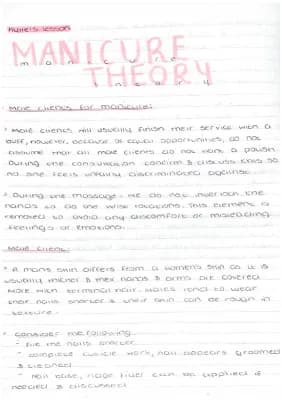 Kylie's lesson
MANICURE
manicure
THEORY
theory
Male clients for manicure:
• Male clients will usually finish their service with a
buff, however, because of equal opportunities, do not
assume that all male clients do not want a polish.
During the consultation confirm & discuss this so
no one feels unfairly discriminated against.
• During the massage - we do not the
hands to do the wrist rotations. This element is
removed to avoid any discomfort or misleading
feelings or emotions.
Male client:
• A mans skin differs from a womens skin as it is
usually thicker & their hands & arms are covered
more with terminal hair. Males tend to wear
their nails shorter & their skin can be rough in
texture.
• Consider the following
- file the nails shorter
- complete cuticle work, nail appears groomed
& cleaned
- nail base, ridge filler can be applied if
needed & discussed